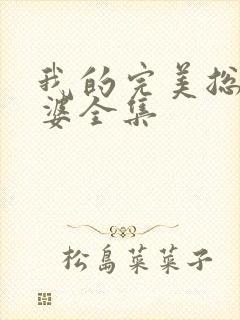 我的完美总
婆全集
松岛菜菜子